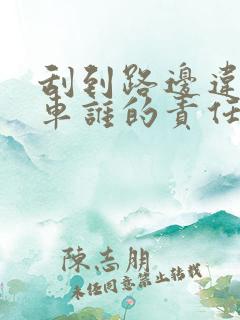 刮到路邊違
車誰的責任
陳志朋
未经同意禁止转载